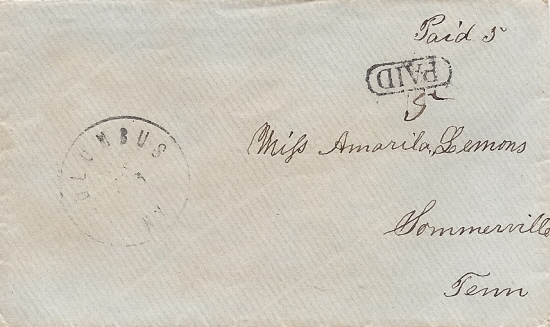 Paid 5
PAID
5
Miss Amarila Lemons
Sommerville
Tenn
OLUMBUS
KY